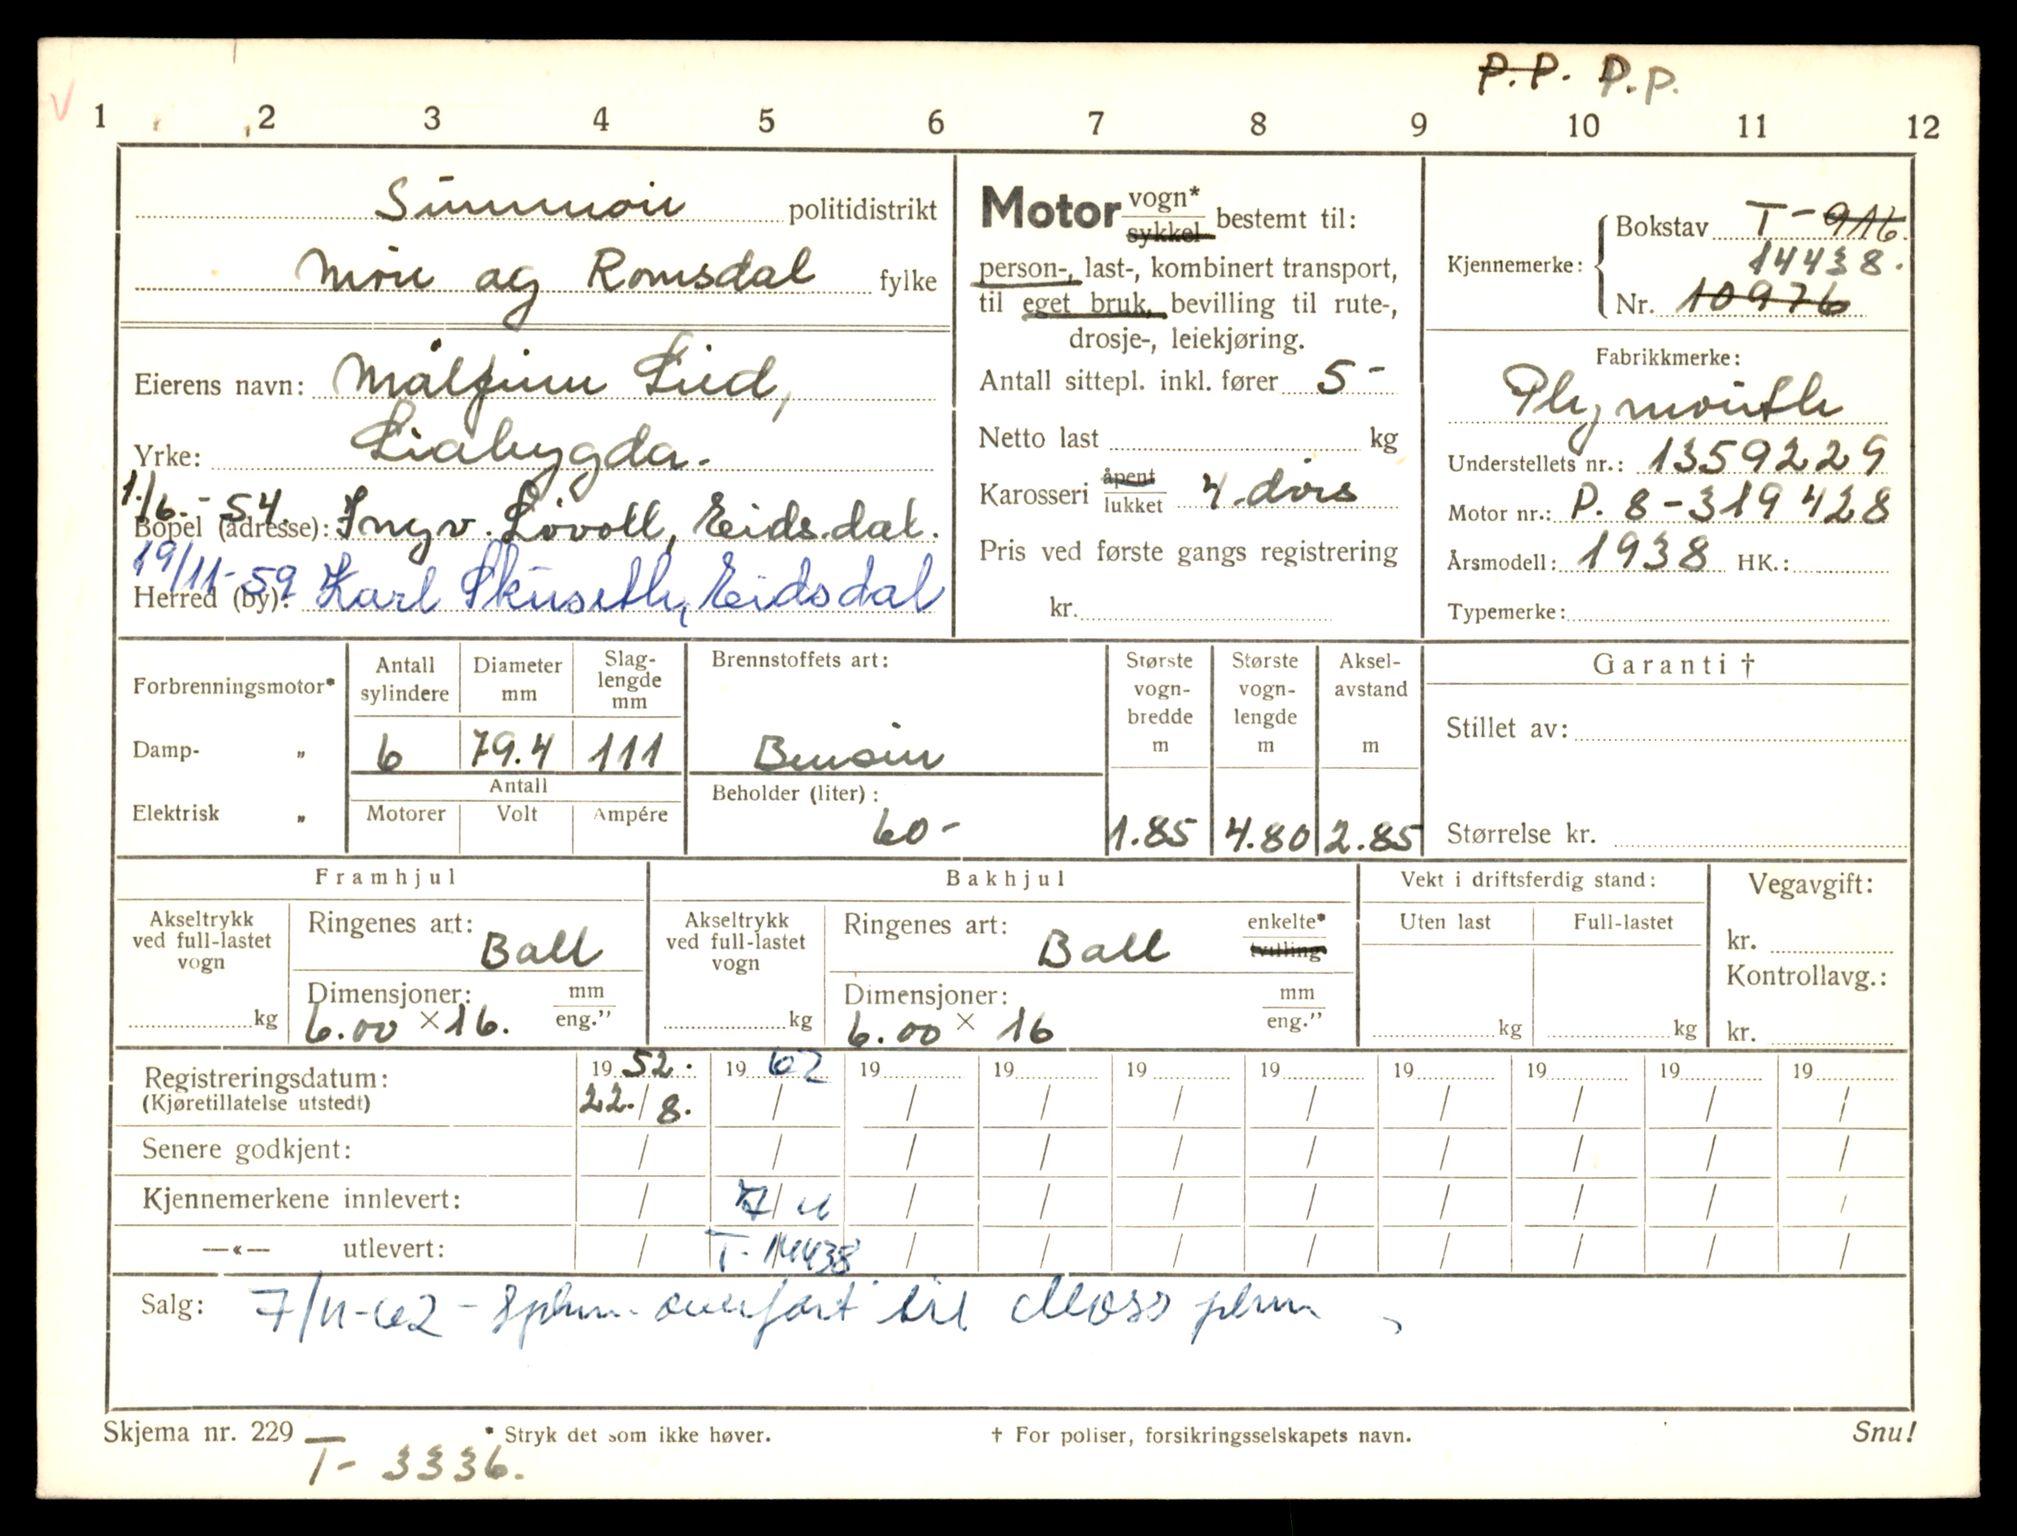 P.P. P.P.
1 2 3 4 5 6 7 8 9 10 11 12
Sunnmøre politidistrikt
Møre og Romsdal fylke
Eierens navn: Målfinn Lied,
Yrke: Liabygda.
1/6.-54.
Bopel (adresse): Ingv. Løvoll, Eidsdal.
19/11-59
Herred (by): Karl Skuseth, Eidsdal
Motor vogn* sykkel bestemt til:
person-, last-, kombinert transport,
til eget bruk, bevilling til rute-,
drosje-, leiekjøring.
Antall sittepl. inkl. fører 5-
Netto last kg
Karosseri åpent lukket 4. dørs
Pris ved første gangs registrering
kr.
Kjennemerke: Bokstav T-916.
14438.
Nr. 10976
Fabrikkmerke:
Plymouth
Understellets nr.: 1359229
Motor nr.: P. 8-319428
Årsmodell: 1938 HK.:
Typemerke:
Forbrenningsmotor*
Damp- „
Elektrisk „
Antall sylindere
Diameter mm
Slag-lengde mm
6 79.4 111
Antall
Motorer Volt Ampére
Brennstoffets art:
Bensin
Beholder (liter):
60-
Største vogn-bredde m
1.85
Største vogn-lengde m
4.80
Aksel-avstand m
2.85
Garanti †
Stillet av:
Størrelse kr.
Framhjul
Akseltrykk ved full-lastet vogn
kg
Ringenes art: Ball
Dimensjoner: mm eng.”
6.00 × 16.
Bakhjul
Akseltrykk ved full-lastet vogn
kg
Ringenes art: Ball enkelte* tvilling
Dimensjoner: mm eng.”
6.00 × 16
Vekt i driftsferdig stand:
Uten last Full-lastet
kg kg
Vegavgift:
kr.
Kontrollavg.:
kr.
Registreringsdatum: 19 52. 19 62 19 19 19 19 19 19 19 19
(Kjøretillatelse utstedt) 22./8. / / / / / / / / /
Senere godkjent: / / / / / / / / / /
Kjennemerkene innlevert: / 7/11 / / / / / / / /
—«— utlevert: / T-14438 / / / / / / / /
Salg: 7/11-62 - Sphm. overført til Moss phm
Skjema nr. 229 * Stryk det som ikke høver. † For poliser, forsikringsselskapets navn. Snu!
T- 3336.